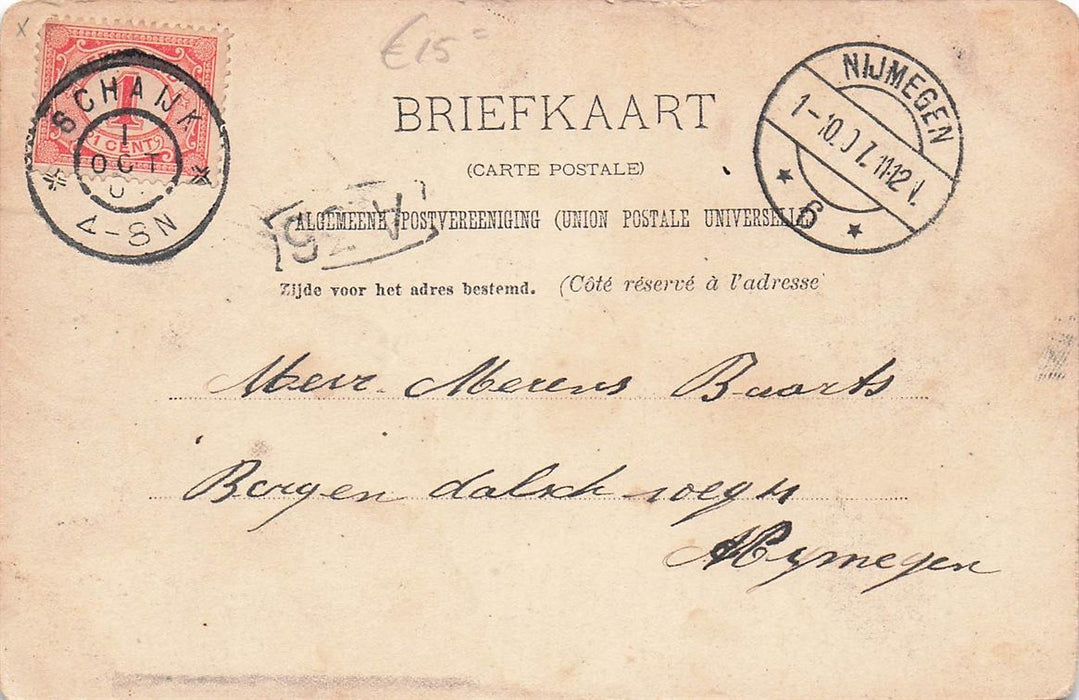 x
€15=
1
1 CENT
SCHAIJK
1
OCT
4-8N
NIJMEGEN
1-10.07.11-12V.
6
BRIEFKAART
(CARTE POSTALE)
ALGEMEENE POSTVEREENIGING (UNION POSTALE UNIVERSELLE)
Zijde voor het adres bestemd. (Côté réservé à l'adresse
Mevr. Merens Baarts
Bergen dalsch
Nymegen